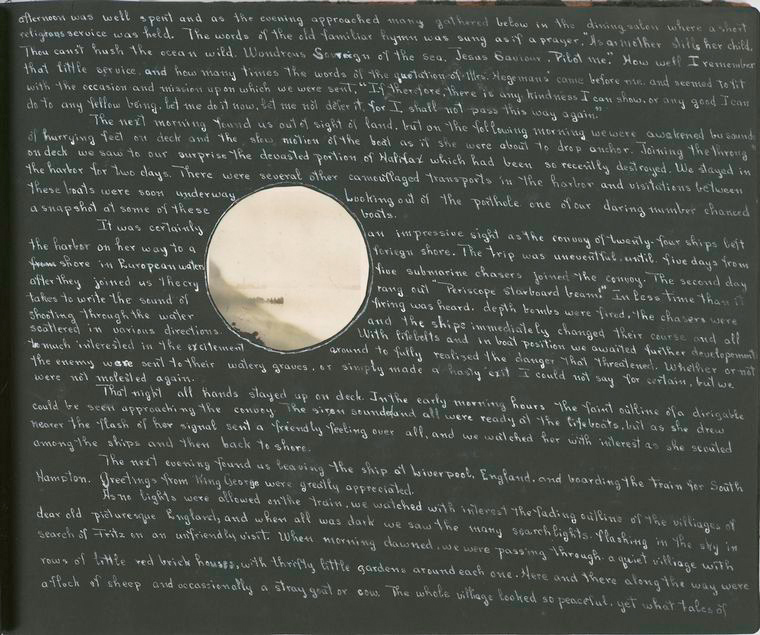 afternoon was well spent and as the evening approached many gathered below in the dining salon where a short
religious service was held. The words of the old familiar hymn was sung as if a prayer, "As a mother stills her child.
Thou can'st hush the ocean wild. Wondrous Sovereign of the sea, Jesus Saviour, Pilot me." How well I remember
that little service, and how many times the words of the quotation of Mrs. Hegeman's came before me, and seemed to fit
with the occasion and mission upon which we were sent. "If therefore, there is any kindness I can show, or any good I can
do to any fellow being, let me do it now, let me not defer it, for I, shall not pass this way again."
The next morning found us out of sight of land, but on the following morning we were awakened by sounds
of hurrying feet on deck and the slow motion of the boat as if she were about to drop anchor. Joining the throng
on deck we saw to our surprise the devasted portion of Halifax which had been so recently destroyed. We stayed in
the harbor for two days. There were several other camouflaged transports in the harbor and visitations between
these boats were soon underway. Looking out of the porthole one of our daring number chanced
a snapshot at some of these boats.
It was certainly an impressive sight as the convoy of twenty-four ships left
the harbor on her way to a foriegn shore. The trip was uneventful until five days from
shore in European water five submarine chasers joined the convoy. The second day
after they joined us the cry rang out "Periscope starboard beam!" In less time than it
takes to write the sound of firing was heard, depth bombs were fired, the chasers were
shooting through the water and the ships immediately changed their course and all
scattered in various directions. With lifebelts and in boat position we awaited further developement
to much interested in the excitement around to fully realized the danger that threatened. Whether or not
the enemy were sent to their watery graves, or simply made a hasty exit I could not say for certain, but we
were not molested again.
That night all hands stayed up on deck. In the early morning hours the faint outline of a dirigable
could be seen approaching the convoy. The siren sounded and all were ready at the lifeboats, but as she drew
nearer the flash of her signal sent a friendly feeling over all, and we watched her with interest as she scouted
among the ships and then back to shore.
The next evening found us leaving the ship at Liverpool, England, and boarding the train for South
Hampton. Greetings from King George were greatly appreciated.
As no lights were allowed on the train, we watched with interest the fading outline of the villiages of
dear old picturesque England, and when all was dark we saw the many searchlights flashing in the sky in
search of Fritz on an unfriendly visit. When morning dawned, we were passing through a quiet villiage with
rows of little red brick houses, with thrifty little gardens around each one. Here and there along the way were
a flock of sheep and occassionally a stray goat or cow. The whole village looked so peaceful, yet what tales of